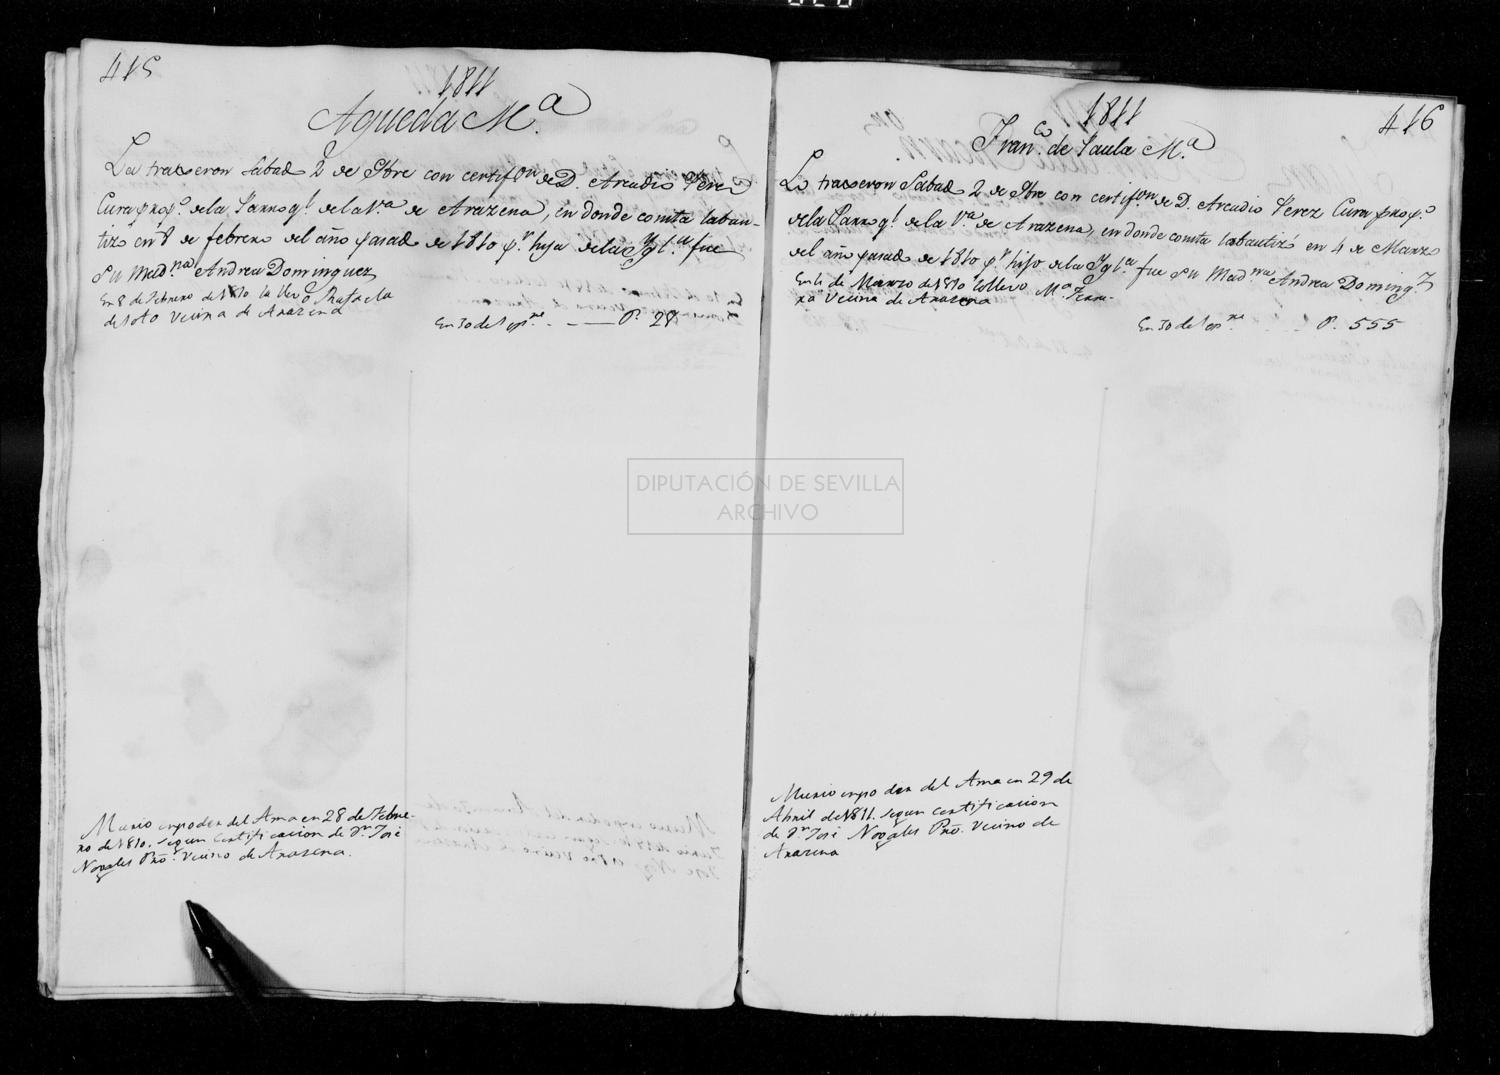 415
1811
Agueda M.a
La traxeron Sabad. 2 de Sbre con certif.on de D. Arcadio Perez
Cura prop.o de la Parroq.l de la V.a de Arazena, en donde consta la bau-
tizó en 8 de febrero del año pasad. de 1810 p.r hija de la Ygl.a fue
su Mad.na Andrea Dominguez
En 8 de Febrero de 1810 la llevo Rafaela
de Soto vecina de Aracena
En 30 de Sep.re - - — P. 28
Murio en poder del Ama en 28 de Febre-
ro de 1810. segun Certificacion de D.n José
Nogales Pro. vecino de Aracena.
1811
416
Fran.co de Paula M.a
Lo traxeron Sabad. 2 de Sbre con certif.on de D. Arcadio Perez Cura prop.o
de la Parroq.l de la V.a de Arazena, en donde consta lo bautizó en 4 de Marzo
del año pasad. de 1810 p.r hijo de la Ygl.a fue su Mad.na Andrea Doming.z
En 4 de Marzo de 1810 lo llevo M.a Ferre-
ra vecina de Aracena
En 30 de Sep.re - - - P. 555
Murio en poder del Ama en 29 de
Abril de 1811. segun Certificacion
de D.n José Nogales Pro. vecino de
Aracena
DIPUTACIÓN DE SEVILLA
ARCHIVO